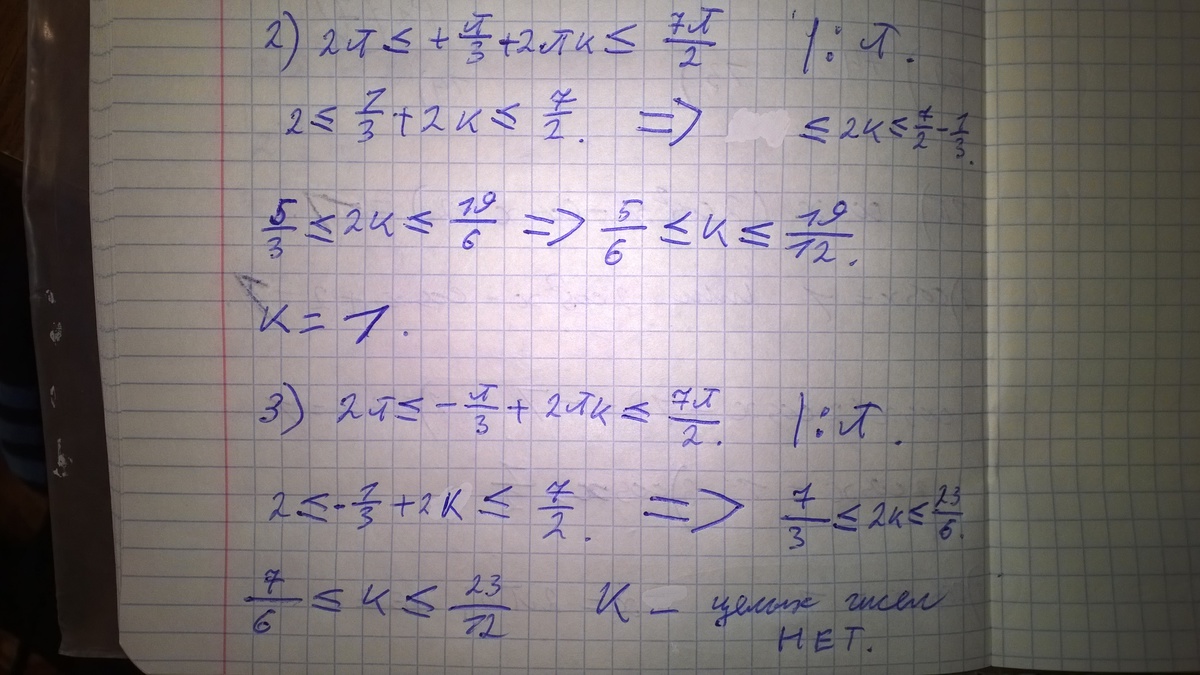 2) 2π ≤ +π/3 + 2πк ≤ 7π/2 |:π.
2 ≤ 1/3 + 2к ≤ 7/2. => ≤ 2к ≤ 7/2 - 1/3.
5/3 ≤ 2к ≤ 19/6 => 5/6 ≤ к ≤ 19/12.
К = 1.
3) 2π ≤ -π/3 + 2πк ≤ 7π/2. |:π.
2 ≤ -1/3 + 2к ≤ 7/2. => 7/3 ≤ 2к ≤ 23/6.
7/6 ≤ к ≤ 23/12 К – целых чисел
НЕТ.